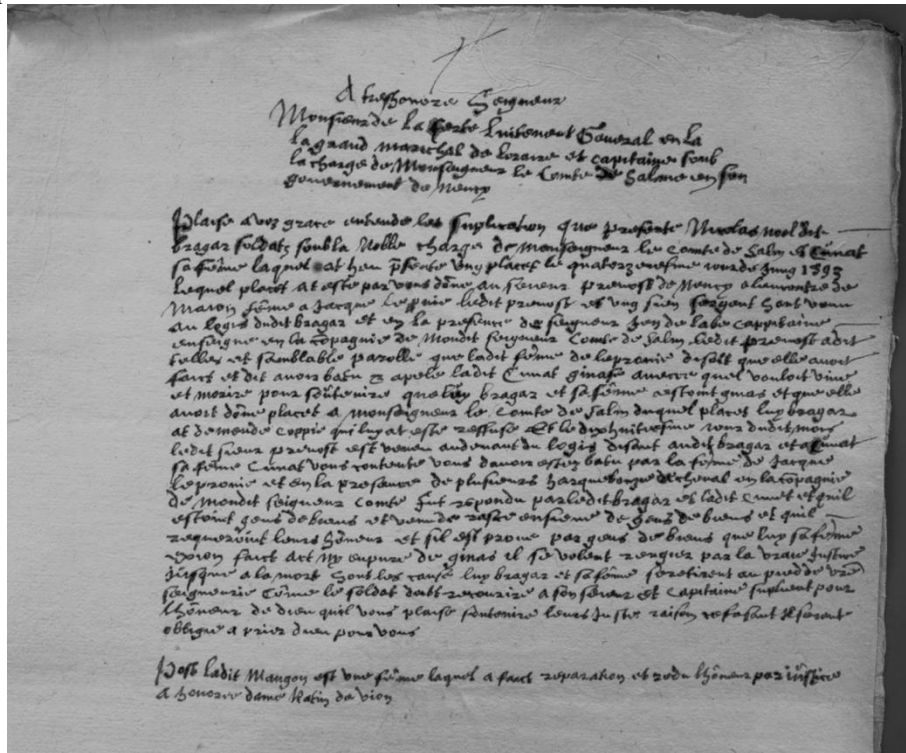 A treshonore Seigneur
Monsieur de la ferte Luitenent General en la
la grand marichal de Loraine et capitaine soub
la charge de Monseigneur le Comte de Salme en son
gouvernement de Nency
Plaise a voz grace entende les suplication que presente Nicolas noel dit
bragar soldatz soub la Noble charge de monseigneur le Comte de Salm et Cunat
sa fême laquel at heu pñsente ung placet le quatorzenesme jour de Jung 1593
lequel placet at este par vous dône au sieur prevost de Nency a lencontre de
Maion fême a Jacque le ledit prevost et ung sien sergent sont venu
au logis dudit bragar et en la presence de seigneur Jen de labe cappitaine
enseigne en la côpagnie de Mondit seigneur Comte de Salm ledit prevost a dit
telles et samblable parolle que ladit fême de disoit que elle avoit
faict et dit avoir batu apele ladit Cunat ginasse quel vouloit vivre
et morire pour soûtenire que luy bragar et sa fême estoint ginas et que elle
avoit dône placet a monseigneur le Comte de Salm duquel placet luy bragar
at demende coppie qui luy at este reffuse Et le dixhuitiesme jour dudit mois
ledit sieur prevost est venu audevant du logis disant audit bragar et a Cunat
sa fême Cunat vous contente vous davoir estez batu par la fême de Jacque
et en la presance de plusieurs harquebouge a cheval en la côpagnie
de Mondit seigneur Comte fut repondu par ledit bragar et ladit Cunet et quil
estoint gens de biens et venu de raice ensiene de gens de biens et quil
requeroint leurs hôneur et sil est prove par gens de biens que luy sa fême
faict act ny de ginas il se volent rengier par la vraie Justice
Jusque a la mort sont les cause luy bragar et sa fême se retirent au piedde vrê
seigneurie côme le soldat doit recourire a son sieur et capitaine supliant pour
lhôneur de dieu quil vous plaise soutenire leurs Juste raison ce fasant Il seront
oblige a prier dieu pour vous
Post ladit Maugon est une fême laquel a faict reparation et rendu lhôneur par iustice
a honoree dame Katin de vion